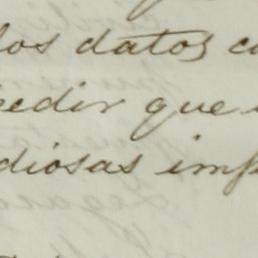 los datos co
pedir que
diosas imp